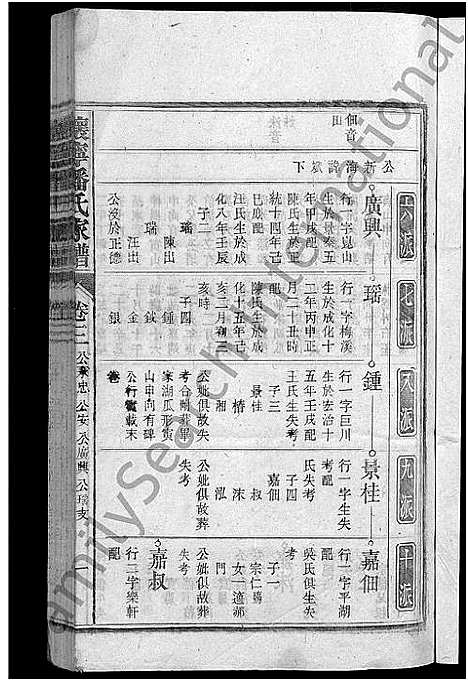 佃音田
公新海諱斌下
六派
七派
八派
九派
十派
廣興
行一字崑山
生於景泰五
年甲戌配
陳氏生於正
統十四年己
巳庶配
汪氏生於成
化八年壬辰
子二
瑤 陳出
瑞 汪出
公沒於正德
瑤
行一字梅溪
生於成化十
二年丙申正
月二十丑時
配
陳氏生於成
化十五年己
亥二月初三
亥時
子四
鍾
鉞
金
銀
鍾
行一字巨川
生於宏治十
五年壬戌配
王氏生失考
子三
景桂
椿
湘
公妣俱故失
考合葬蔣畢
家湖瓜形寅
山申向有碑
公行實載末
卷
景桂
行一字生失
考配
氏失考
子四
嘉佃
叔
沫
泓
公妣俱故葬
失考
嘉佃
行一字平湖
配
吳氏俱生失
考
子一
宗仁
女一適鄒
門
公妣俱故葬
失考
嘉叔
行二字樂軒
配
懷寧潘氏家譜
卷三
一
FamilySearch International